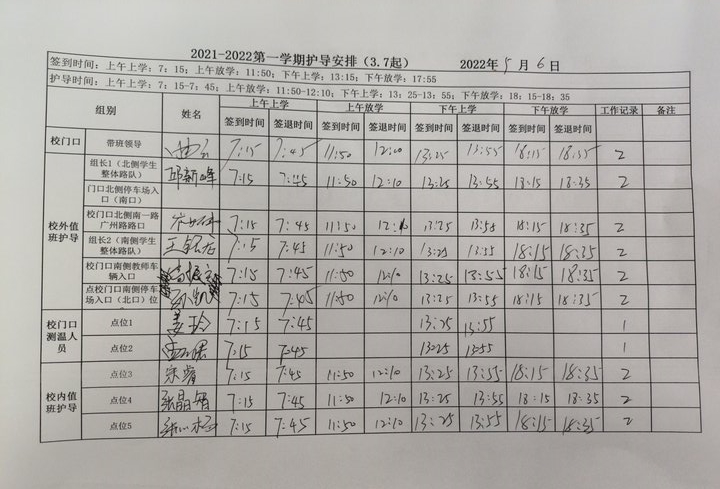 2021-2022第一学期护导安排（3.7起） 2022年5月6日
签到时间：上午上学：7：15；上午放学：11:50；下午上学：13:15；下午放学：17:55
护导时间：上午上学：7：15-7：45；上午放学：11:50-12:10；下午上学：13：25-13：55；下午放学：18：15-18：35
组别 姓名 上午上学 上午放学 下午上学 下午放学 工作记录 备注
签到时间 签退时间 签到时间 签退时间 签到时间 签退时间 签到时间 签退时间
校门口 带班领导 7:15 7:45 11:50 12:10 13:25 13:55 18:15 18:35 2
校外值班护导
组长1（北侧学生整体路队） 邱新峰 7:15 7:45 11:50 12:10 13:25 13:55 18:15 18:35 2
门口北侧停车场入口（南口）
校门口北侧南一路广州路路口 7:15 7:45 11:50 12:10 13:25 13:55 18:15 18:35 2
组长2（南侧学生整体路队） 7:15 7:45 11:50 12:10 13:25 13:55 18:15 18:35 2
校门口南侧教师车辆入口 7:15 7:45 11:50 12:10 13:25 13:55 18:15 18:35 2
点校门口南侧停车场入口（北口）位 7:15 7:45 11:50 12:10 13:25 13:55 18:15 18:35 2
校门口测温人员
点位1 姜玲 7:15 7:45 13:25 13:55 1
点位2 7:15 7:45 13:25 13:55 1
校内值班护导
点位3 7:15 7:45 11:50 12:10 13:25 13:55 18:15 18:35 2
点位4 张晶智 7:15 7:45 11:50 12:10 13:25 13:55 18:15 18:35 2
点位5 7:15 7:45 11:50 12:10 13:25 13:55 18:15 18:35 2